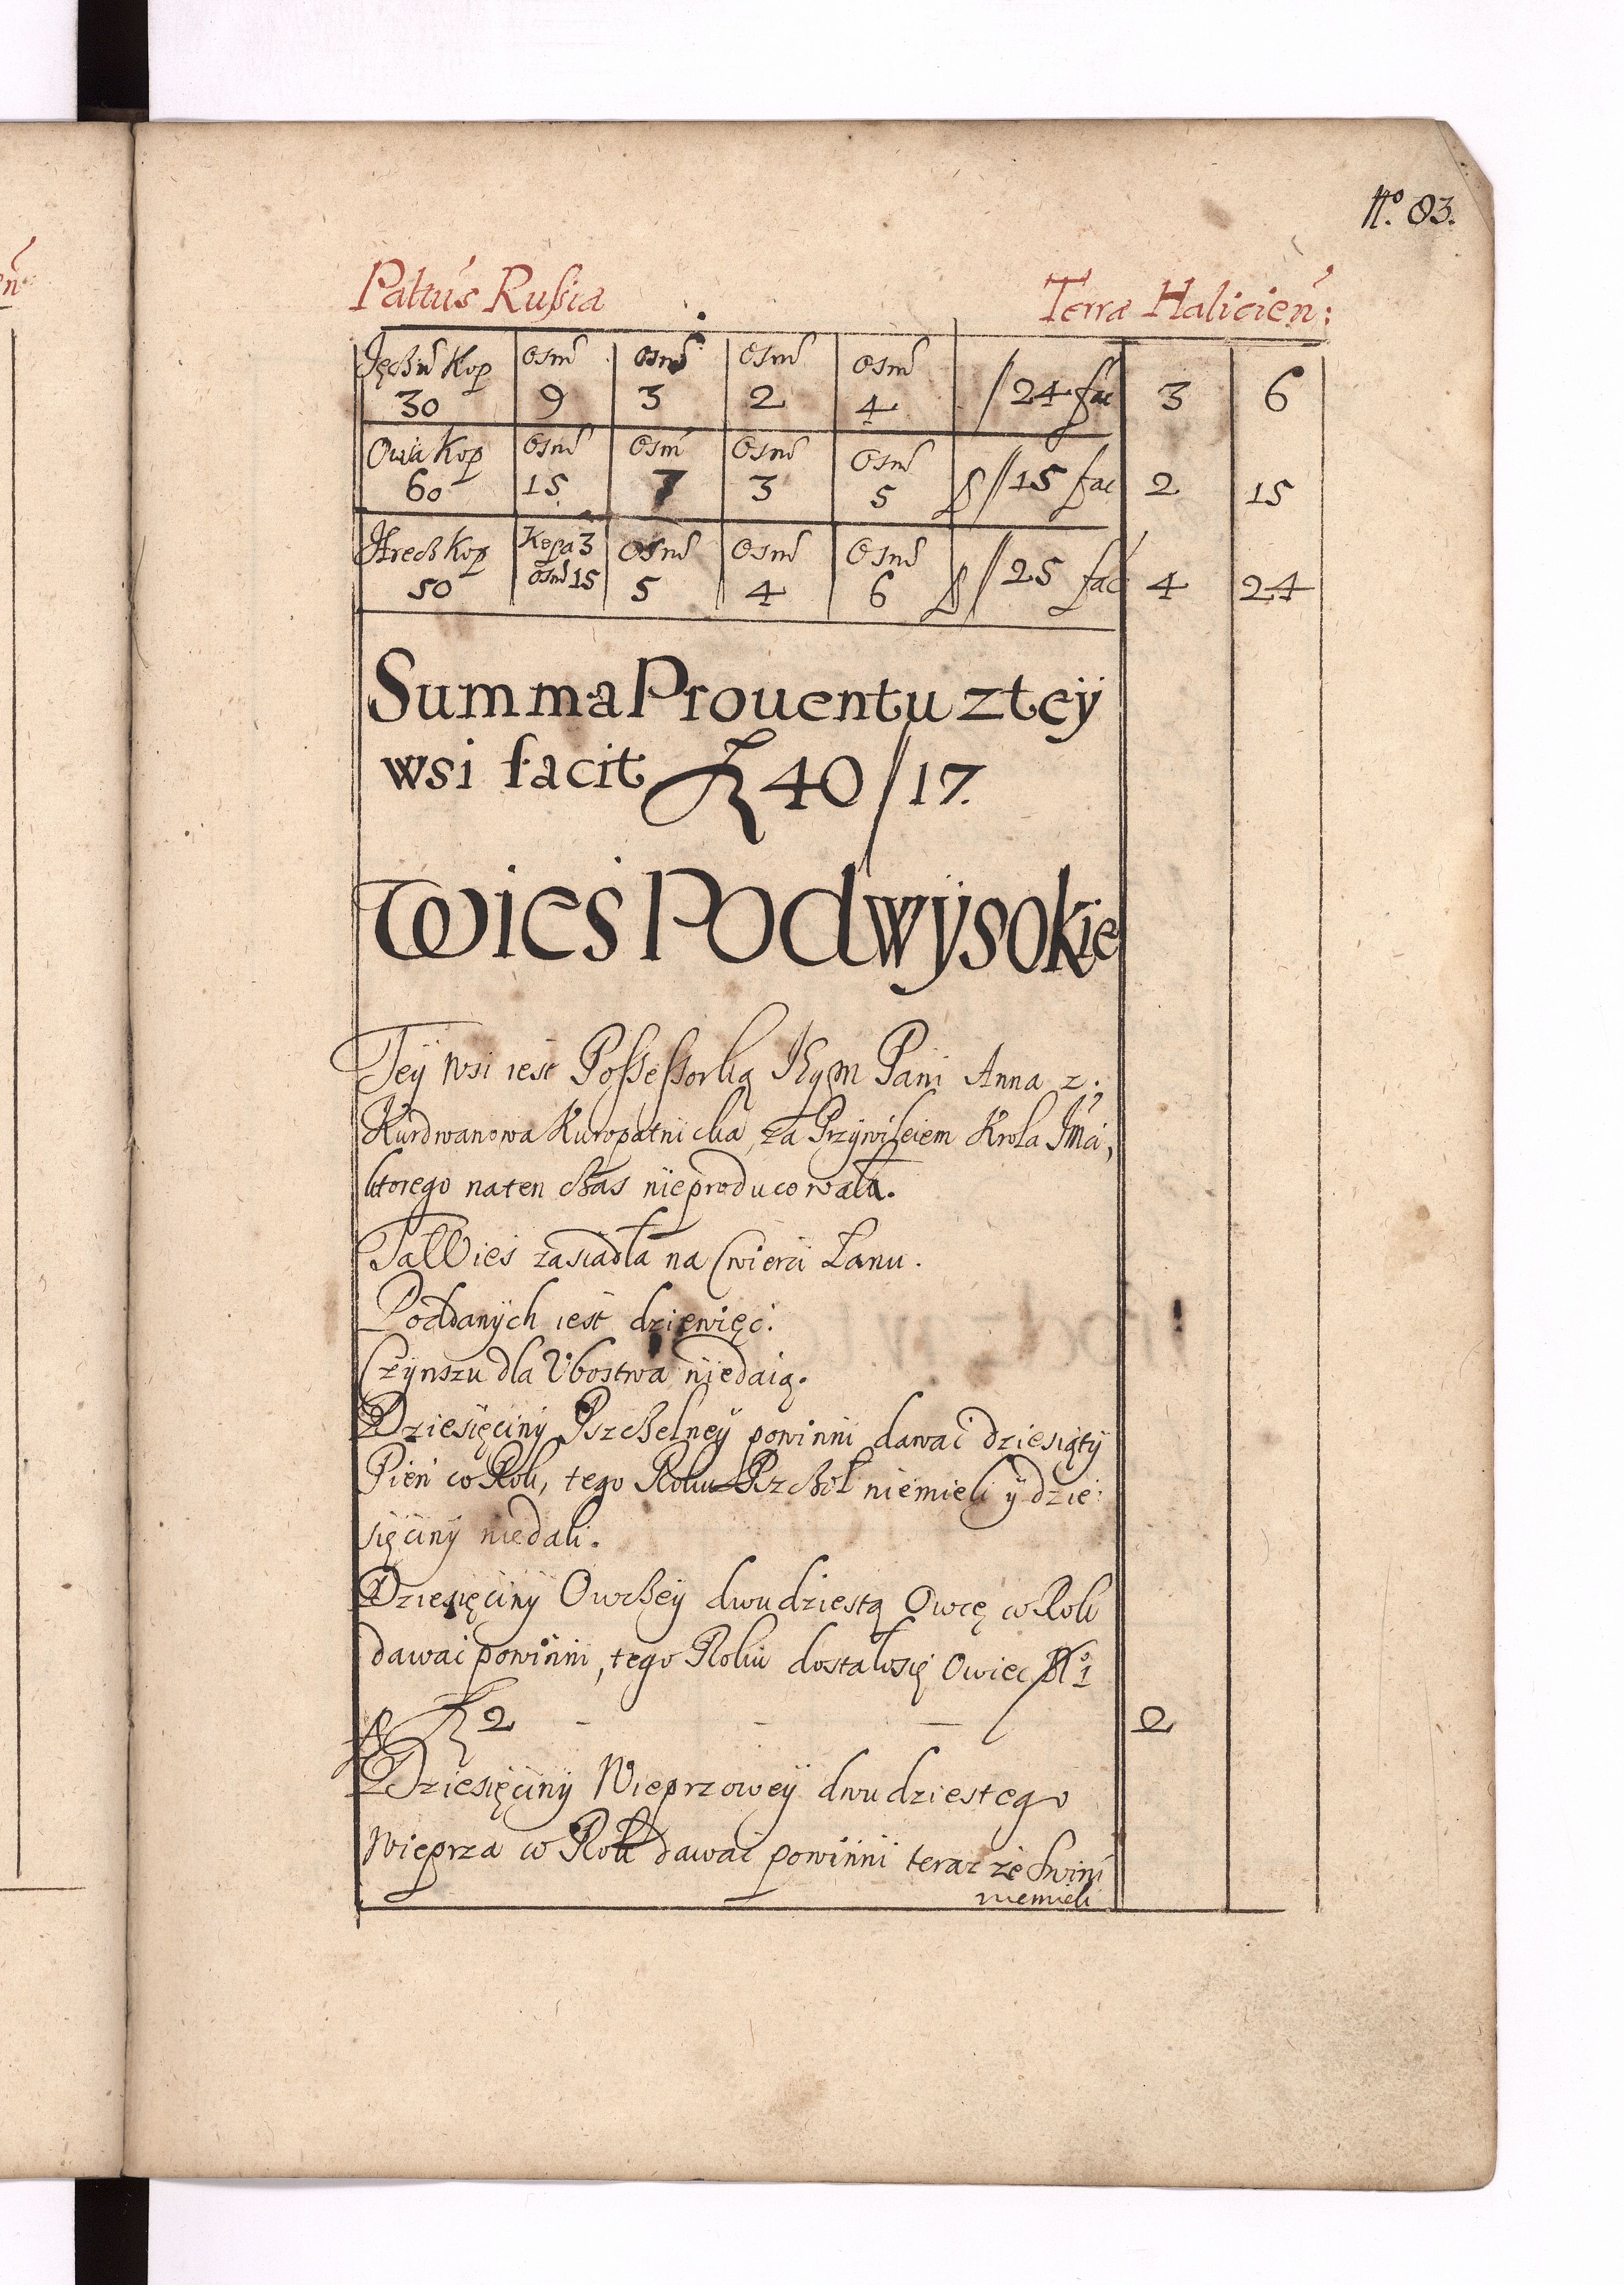 No. 83.
Pałtus Rußia Terra Halicień:
Jęczm Kop Osm Osm Osm Osm
30 9 3 2 4 /24 fac 3 6
Owsa Kop Osm Osm Osm Osm
60 15 7 3 5 /15 fac 2 15
Hrecz Kop Kopa 3 Osm Osm Osm
50 osm 15 5 4 6 /25 fac 4 24
Summa Prouentu z teÿ
wsi facit 40/17.
Wieś Podwÿsokie
Teÿ wsi iest Poßeßorką Pani Anna z
Kurdwanowa Kuropatnicka, za Przÿwileiem Krola Jmći,
ktorego naten czas nieproducowała.
Ta Wieś zasiadła na Cwierci Łanu.
Poddanÿch iest dziewięć.
Czÿnszu dla Vbostwa niedaią.
Dziesięcinÿ Pszczelneÿ powinni dawać dziesiątÿ
Pień co Rok, tego Roku Pszczoł niemieli ÿ dzie:
sięcinÿ niedali.
Dziesięcinÿ Owczeÿ dwudziestą Owcę co Rok
dawać powinni, tego Roku dostałosię Owiec No 1
2 - - - 2
Dziesięcinÿ Wieprzoweÿ dwudziestego
Wieprza co Rok dawać powinni teraz że Swini
niemieli